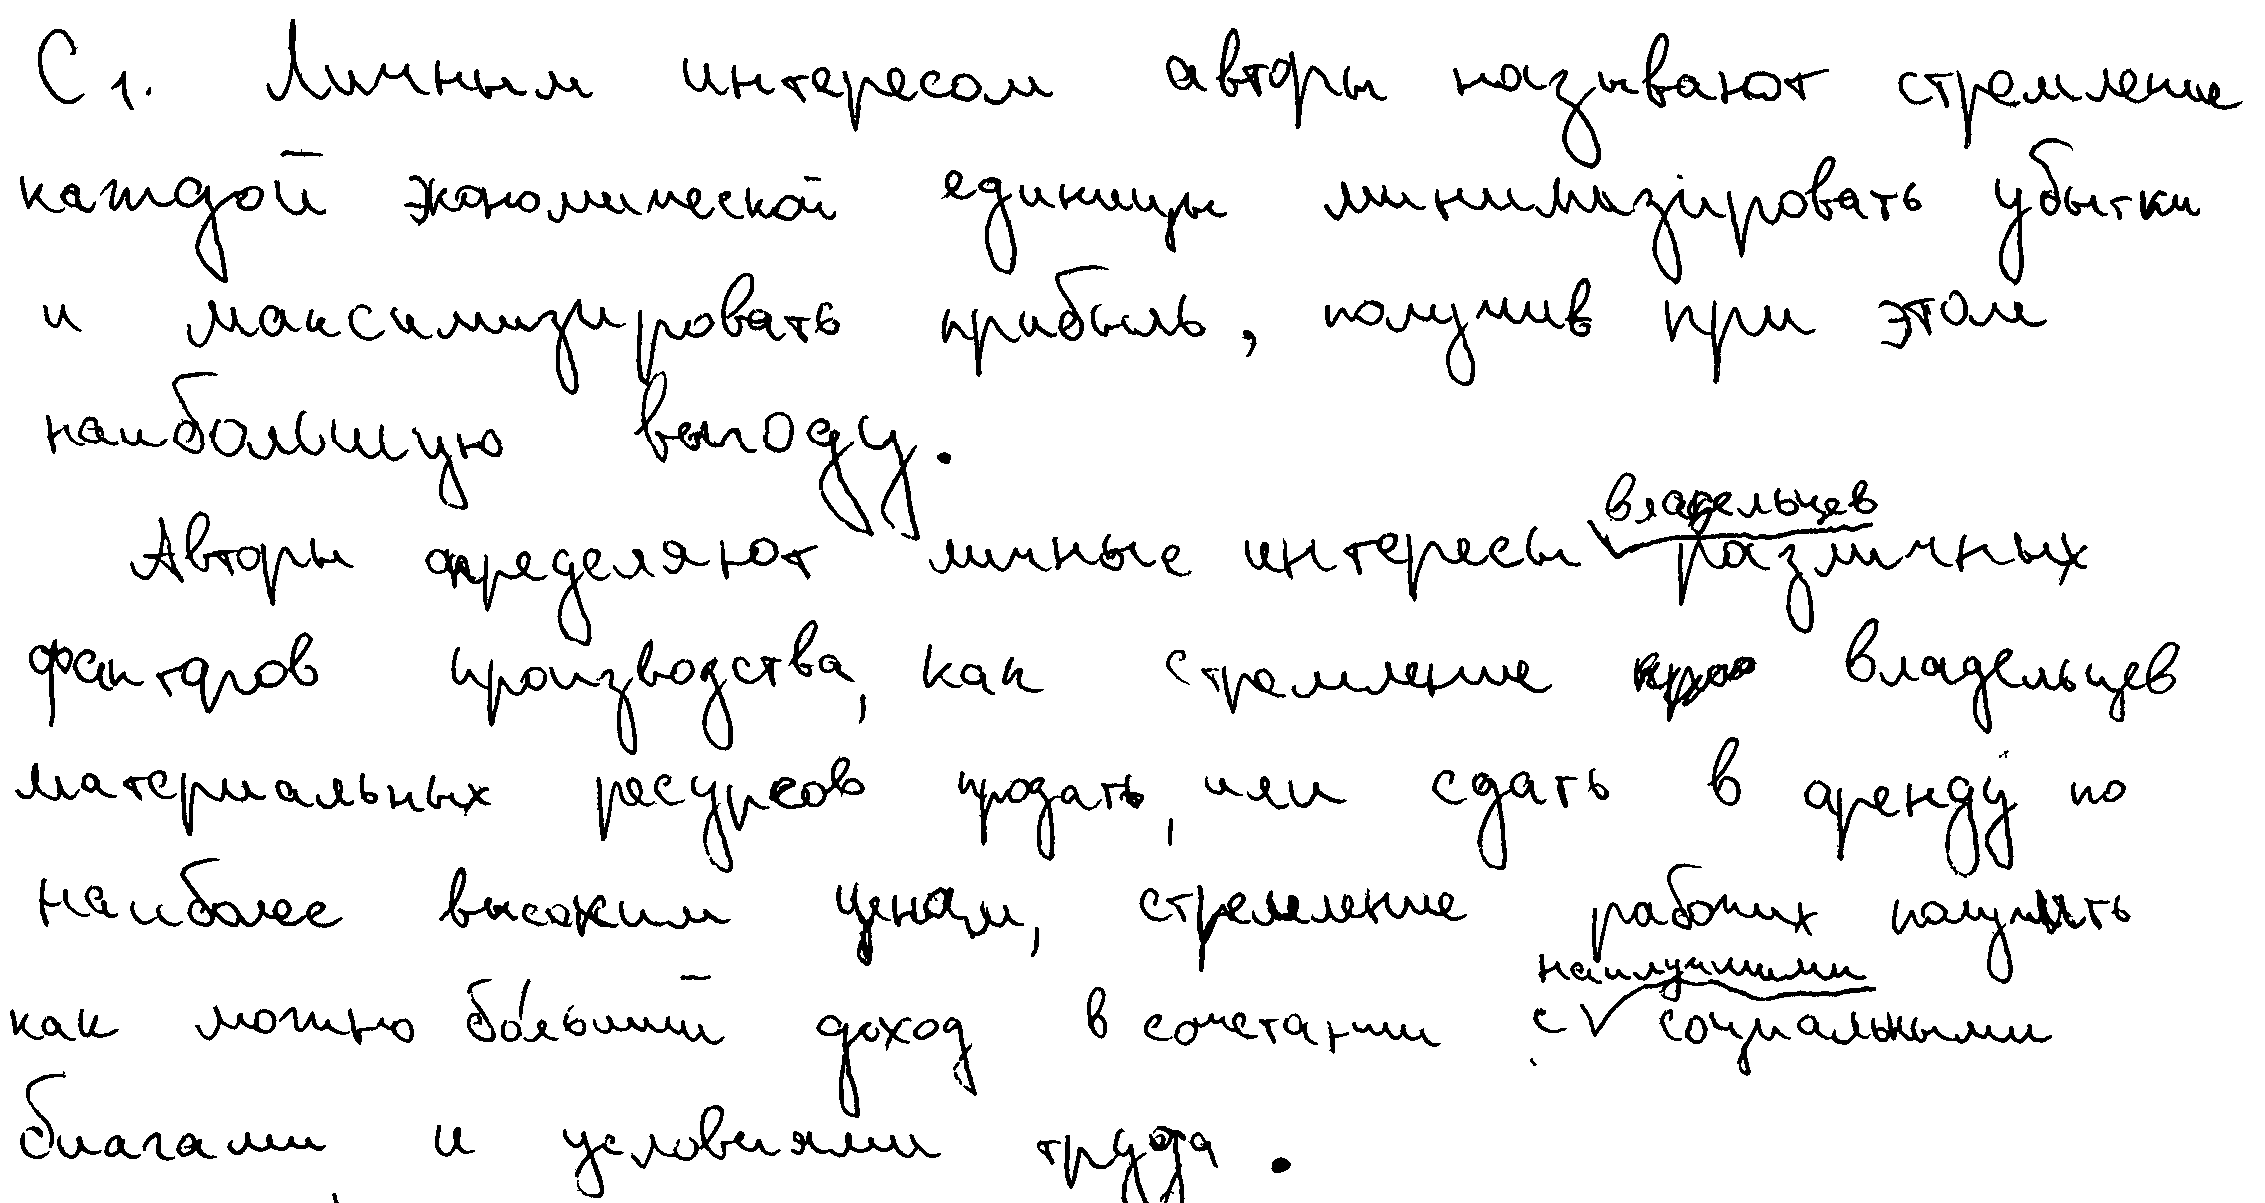 С1. Личным интересом авторы называют стремление
каждой экономической единицы минимизировать убытки
и максимизировать прибыль, получив при этом
наибольшую выгоду.
владельцев
Авторы определяют личные интересы различных
факторов производства, как стремление владельцев
материальных ресурсов продать, или сдать в аренду по
наиболее высоким ценам, стремление рабочих получить
наилучшими
как можно бо́льший доход в сочетании с социальными
благами и условиями труда.